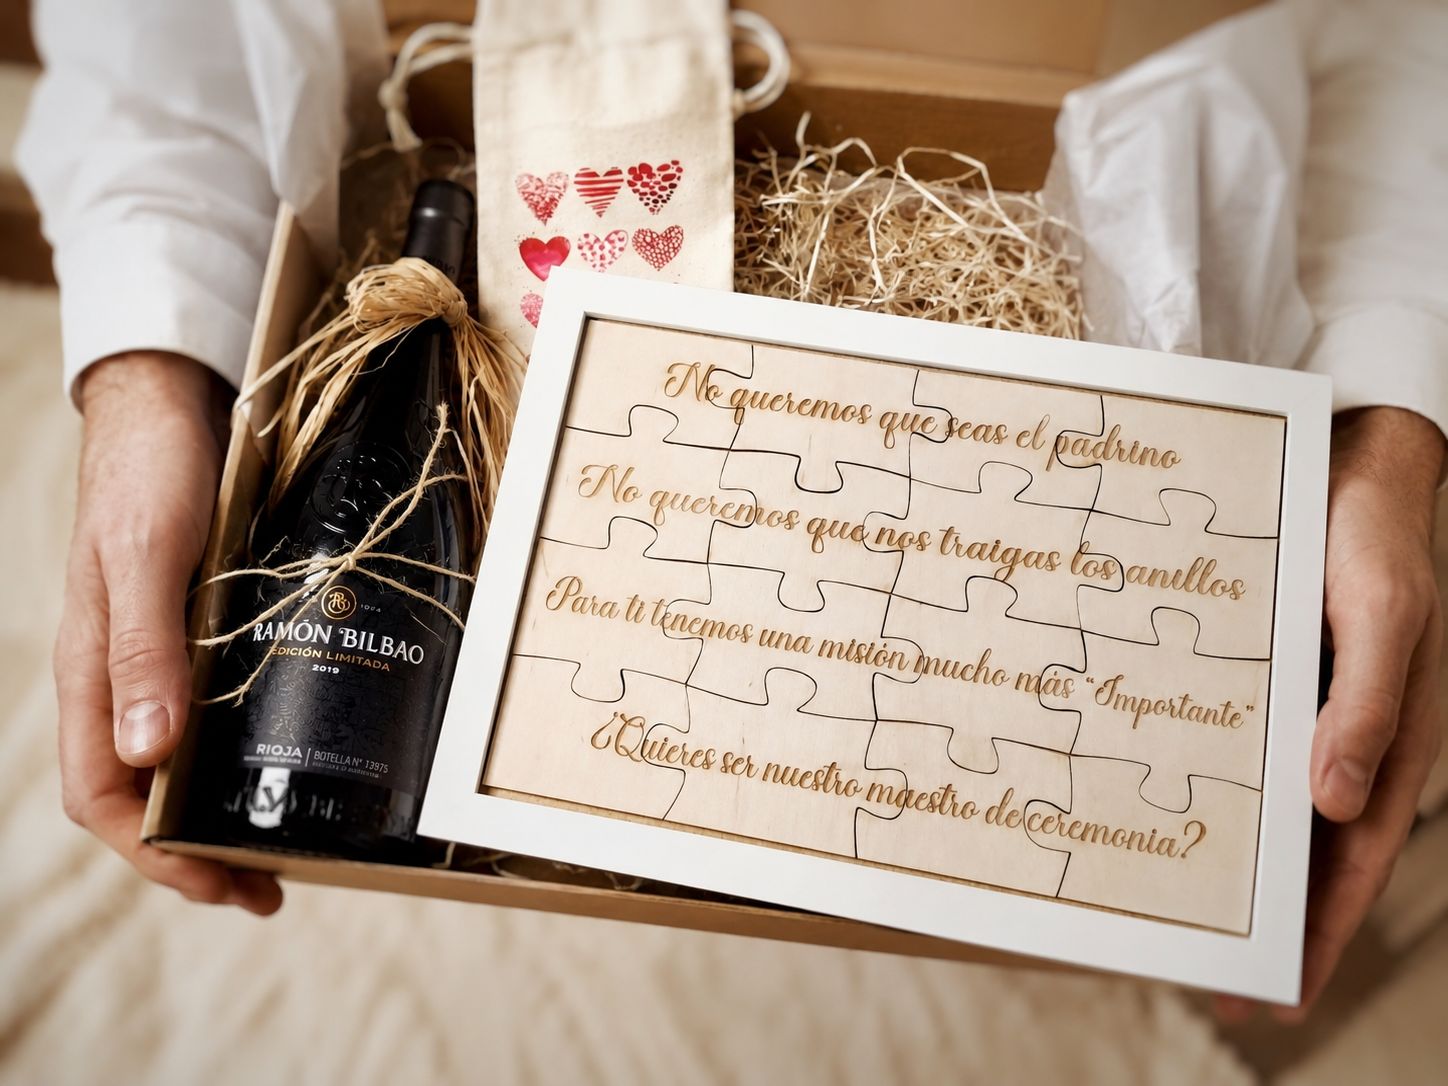 RAMÓN BILBAO
EDICIÓN LIMITADA
2019
RIOJA
BOTELLA Nº 13975
No queremos que seas el padrino
No queremos que nos traigas los anillos
Para ti tenemos una misión mucho más "Importante"
¿Quieres ser nuestro maestro de ceremonia?